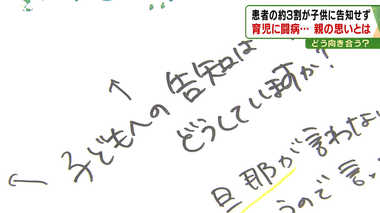 患者の約3割が子供に告知せず
育児に闘病… 親の思いとは
どう向き合う？
子どもへの告知は
どうしていますか？
旦那が言わない
うので言